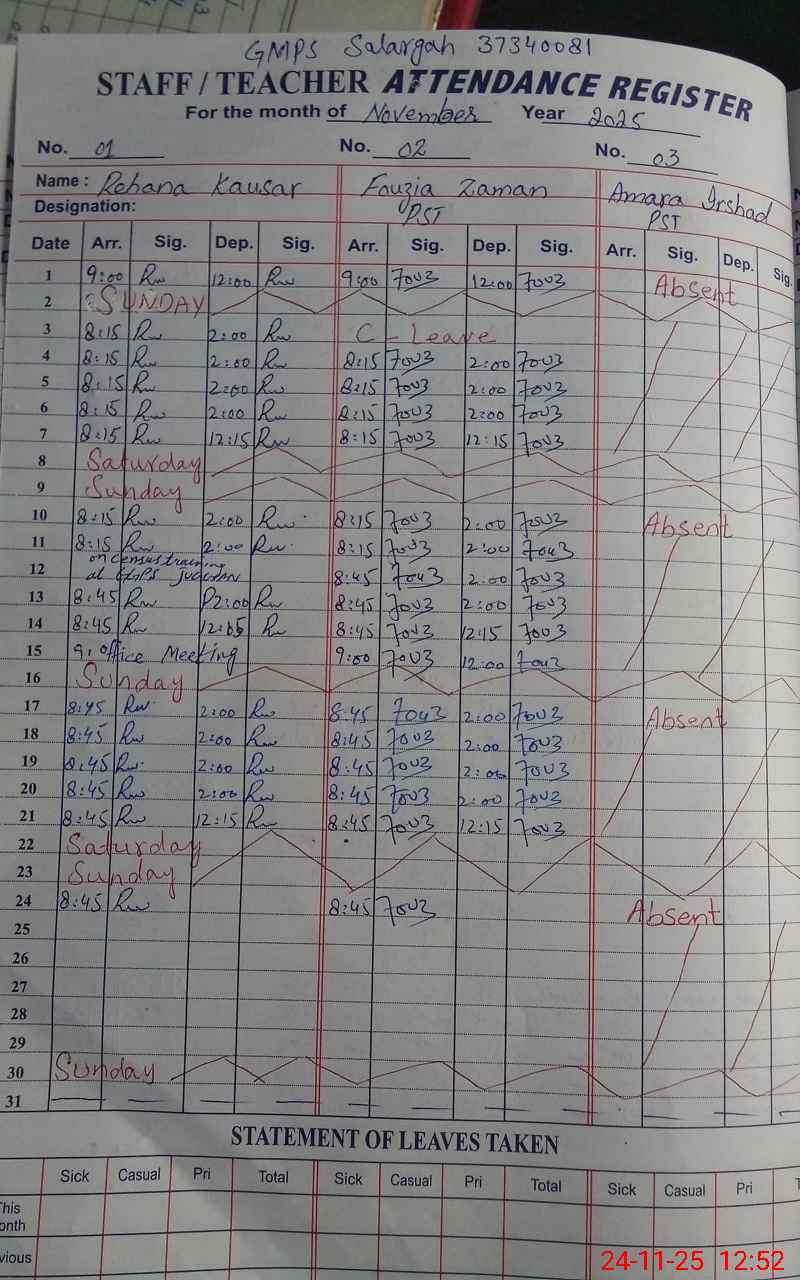 GMPS Salargah 37340081
STAFF / TEACHER ATTENDANCE REGISTER
For the month of November Year 2025
No. 01 No. 02 No. 03
Name: Rehana Kausar Fouzia Zaman Amara Irshad
Designation: PST PST
Date Arr. Sig. Dep. Sig. Arr. Sig. Dep. Sig. Arr. Sig. Dep. Sig.
1 9:00 Rw 12:00 Rw 9:00 7003 12:00 7003 Absent
2 SUNDAY
3 8:15 Rw 2:00 Rw C - Leave
4 8:15 Rw 2:00 Rw 8:15 7003 2:00 7003
5 8:15 Rw 2:00 Rw 8:15 7003 2:00 7003
6 8:15 Rw 2:00 Rw 8:15 7003 2:00 7003
7 8:15 Rw 12:15 Rw 8:15 7003 12:15 7003
8 Saturday
9 Sunday
10 8:15 Rw 2:00 Rw 8:15 7003 2:00 7003 Absent
11 8:15 Rw 2:00 Rw 8:15 7003 2:00 7003
12 on census training at GGPS 8:45 7003 2:00 7003
13 8:45 Rw 2:00 Rw 8:45 7003 2:00 7003
14 8:45 Rw Rw 8:45 7003 12:15 7003
15 9: office Meeting 9:00 7003 12:00 7003
16 Sunday
17 8:45 Rw 2:00 Rw 8:45 7003 2:00 7003 Absent
18 8:45 Rw 2:00 Rw 8:45 7003 2:00 7003
19 8:45 Rw 2:00 Rw 8:45 7003 2:00 7003
20 8:45 Rw 2:00 Rw 8:45 7003 2:00 7003
21 8:45 Rw 12:15 Rw 8:45 7003 12:15 7003
22 Saturday
23 Sunday
24 8:45 Rw 8:45 7003 Absent
25
26
27
28
29
30 Sunday
31
STATEMENT OF LEAVES TAKEN
Sick Casual Pri Total Sick Casual Pri Total Sick Casual Pri
This
onth
vious
24-11-25 12:52